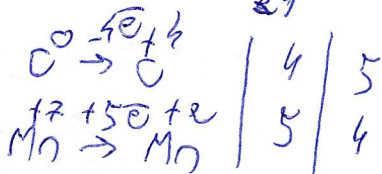 C⁰ -4e̅→ C⁺⁴ | 4 | 5
Mn⁺⁷ +5e̅→ Mn⁺² | 5 | 4